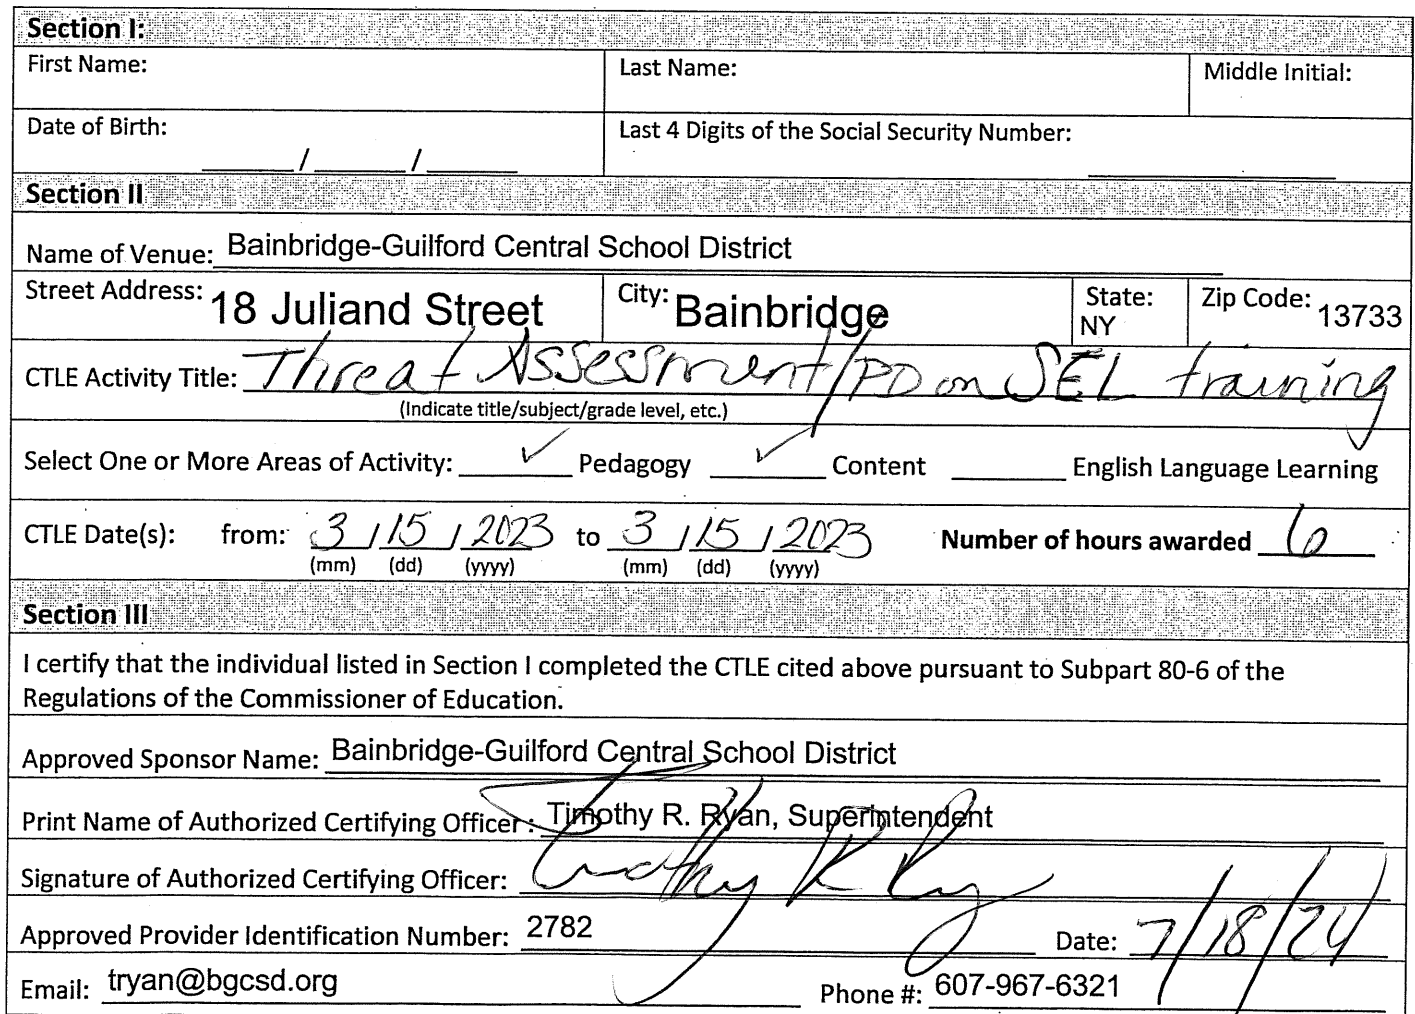 Section I:
First Name: Last Name: Middle Initial:
Date of Birth: Last 4 Digits of the Social Security Number:
____/____/____
Section II
Name of Venue: Bainbridge-Guilford Central School District
Street Address: 18 Juliand Street City: Bainbridge State: NY Zip Code: 13733
CTLE Activity Title: Threat Assessment/PD on SEL training
(Indicate title/subject/grade level, etc.)
Select One or More Areas of Activity: ✓ Pedagogy ✓ Content ____ English Language Learning
CTLE Date(s): from: 3/15/2023 to 3/15/2023 Number of hours awarded 6
(mm) (dd) (yyyy) (mm) (dd) (yyyy)
Section III
I certify that the individual listed in Section I completed the CTLE cited above pursuant to Subpart 80-6 of the
Regulations of the Commissioner of Education.
Approved Sponsor Name: Bainbridge-Guilford Central School District
Print Name of Authorized Certifying Officer: Timothy R. Ryan, Superintendent
Signature of Authorized Certifying Officer: Timothy R Ryan
Approved Provider Identification Number: 2782 Date: 7/18/24
Email: tryan@bgcsd.org Phone #: 607-967-6321